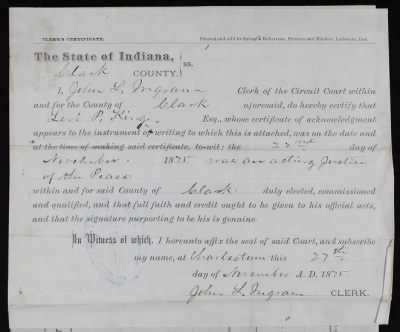 CLERK'S CERTIFICATE. Printed and sold by Spring & Robertson, Printers and Binders, Lafayette, Ind.
The State of Indiana,
Clark COUNTY. } ss.
I, John L. Ingram Clerk of the Circuit Court within
and for the County of Clark aforesaid, do hereby certify that
Levi P. King. Esq., whose certificate of acknowledgment
appears to the instrument of writing to which this is attached, was on the date and
at the time of making said certificate, to-wit: the 22nd day of
November. 1875 was an acting Justice
of the Peace
within and for said County of Clark: duly elected, commissioned
and qualified, and that full faith and credit ought to be given to his official acts,
and that the signature purporting to be his is genuine.
In Witness of which, I hereunto affix the seal of said Court, and subscribe
my name, at Charlestown this 27th
day of November A. D. 1875
John L. Ingram CLERK.